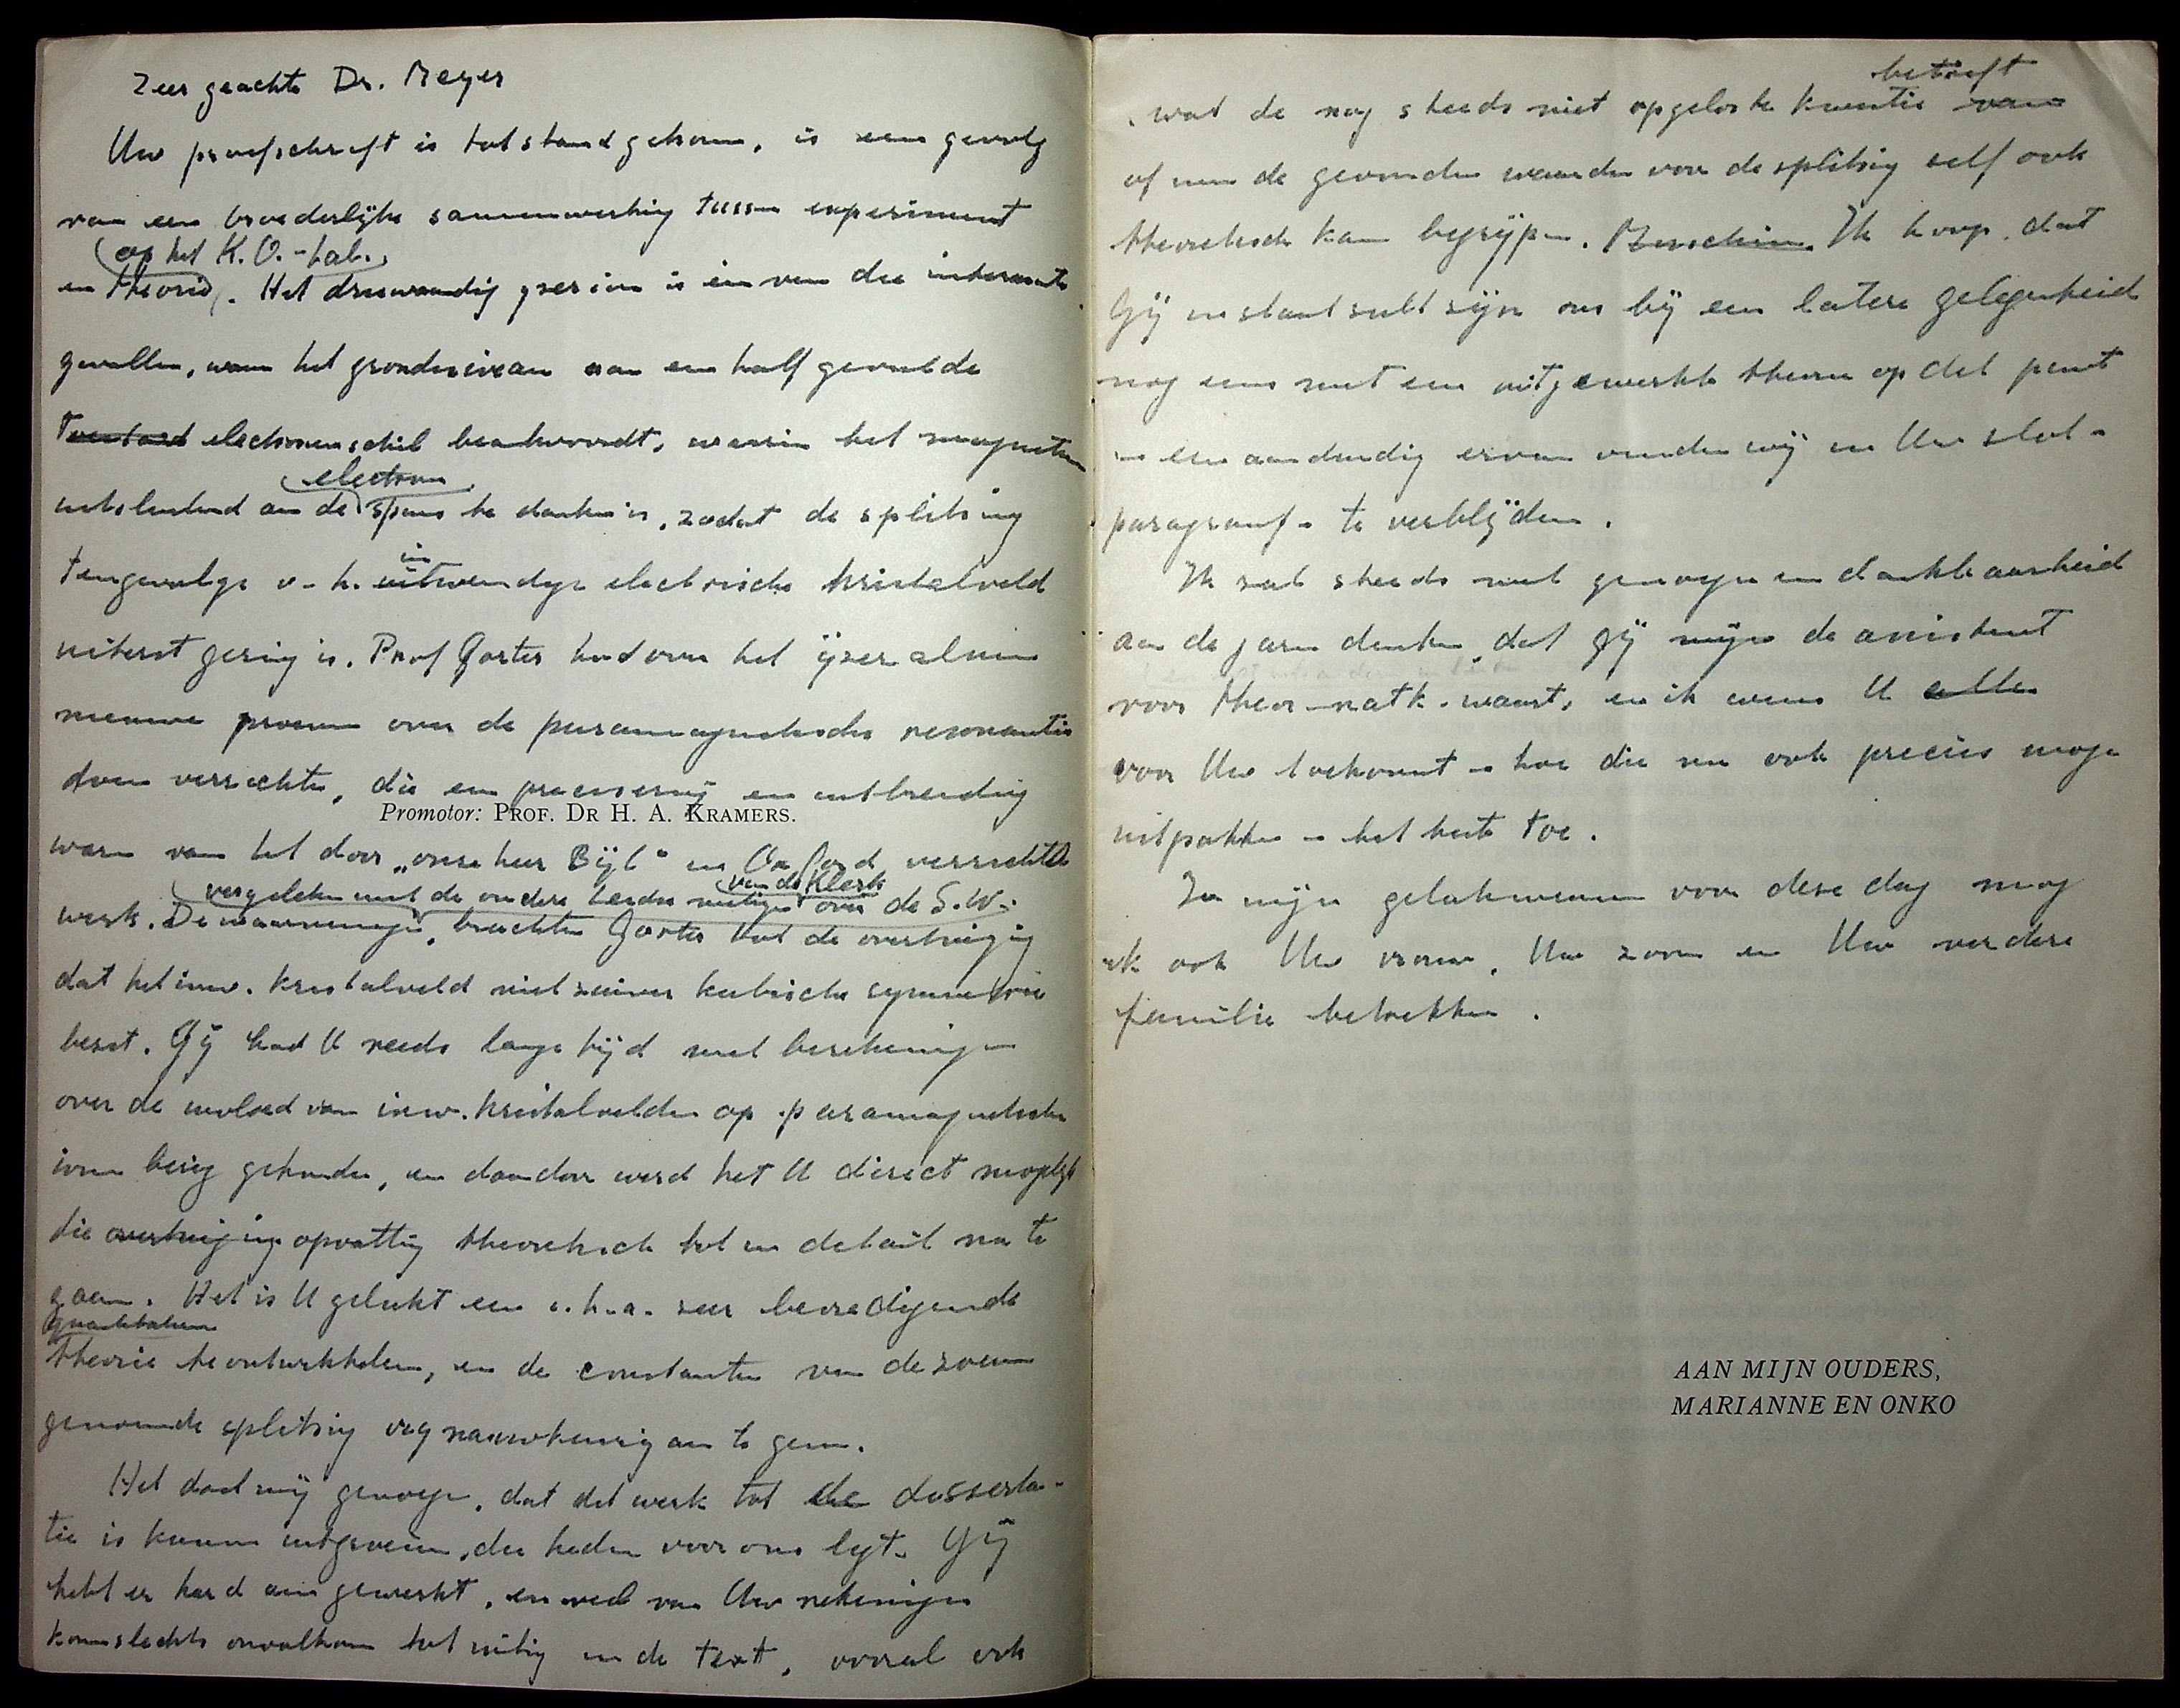 Zeer geachte Dr. Meyer
Uw proefschrift is tot stand gekomen, is een gevolg
van een broederlijke samenwerking tussen experiment
op het K.O.-Lab.
en theorie. Het driewaardig yzer ion is een van die interessante
gevallen, waar het grondniveau aan een half gevulde
toestand electronenschil beantwoordt, waarin het magnetisme
electron
uitsluitend aan de spins te danken is, zodat de splitsing
in
tengevolge v. h. uitwendige electrische kristalveld
uiterst gering is. Prof Gorter had over het ijzer aluin
nieuwe proeven over de paramagnetische resonantie
doen verrichten, die een precisering en uitbreiding
Promotor: PROF. DR H. A. KRAMERS.
waren van het door „onze heer Bijl" in Oxford verrichtte
vergeleken met de oudere Leidse metingen van de Klerk over de S.W.
werk. De waarnemingen, brachten Gorter tot de overtuiging
dat het inw. kristalveld niet zuiver kubische symmetrie
bezat. Gij had U reeds lange tijd met berekeningen
over de invloed van inw. kristalvelden op paramagnetische
ionen bezig gehouden, en daardoor werd het U direct mogelijk
die overtuiging opvatting theoretisch tot in detail na te
gaan. Het is U gelukt een i.h.a. zeer bevredigende
quantitatieve
theorie te ontwikkelen, en de constanten van de zoeven
genoemde splitsing vrij nauwkeurig aan te geven.
Het doet mij genoegen, dat dit werk tot de disserta-
tie is kunnen uitgroeien, die heden voor ons ligt. Gij
hebt er hard aan gewerkt, en veel van Uw rekeningen
komen slechts onvolkomen tot uiting in de text, vooral ook
betreft
wat de nog steeds niet opgeloste kwestie van
of men de gevonden waarden voor de splitsing zelf ook
theoretisch kan begrijpen. Misschien Ik hoop, dat
Gij in staat zult zijn ons bij een latere gelegenheid
nog eens met een uitgewerkte theorie op dit punt
- een aanduiding ervan vinden wij in Uw slot-
paragraaf - te verblijden.
Ik zal steeds met genoegen en dankbaarheid
aan de jaren denken, dat gij mijn de assistent
voor theor. natk. waart, en ik wens U alles
voor Uw toekomst - hoe die nu ook precies moge
uitpakken - het beste toe.
In mijn gelukwensen voor deze dag mag
ik ook Uw vrouw, Uw zoon en Uw verdere
familie betrekken.
AAN MIJN OUDERS,
MARIANNE EN ONKO